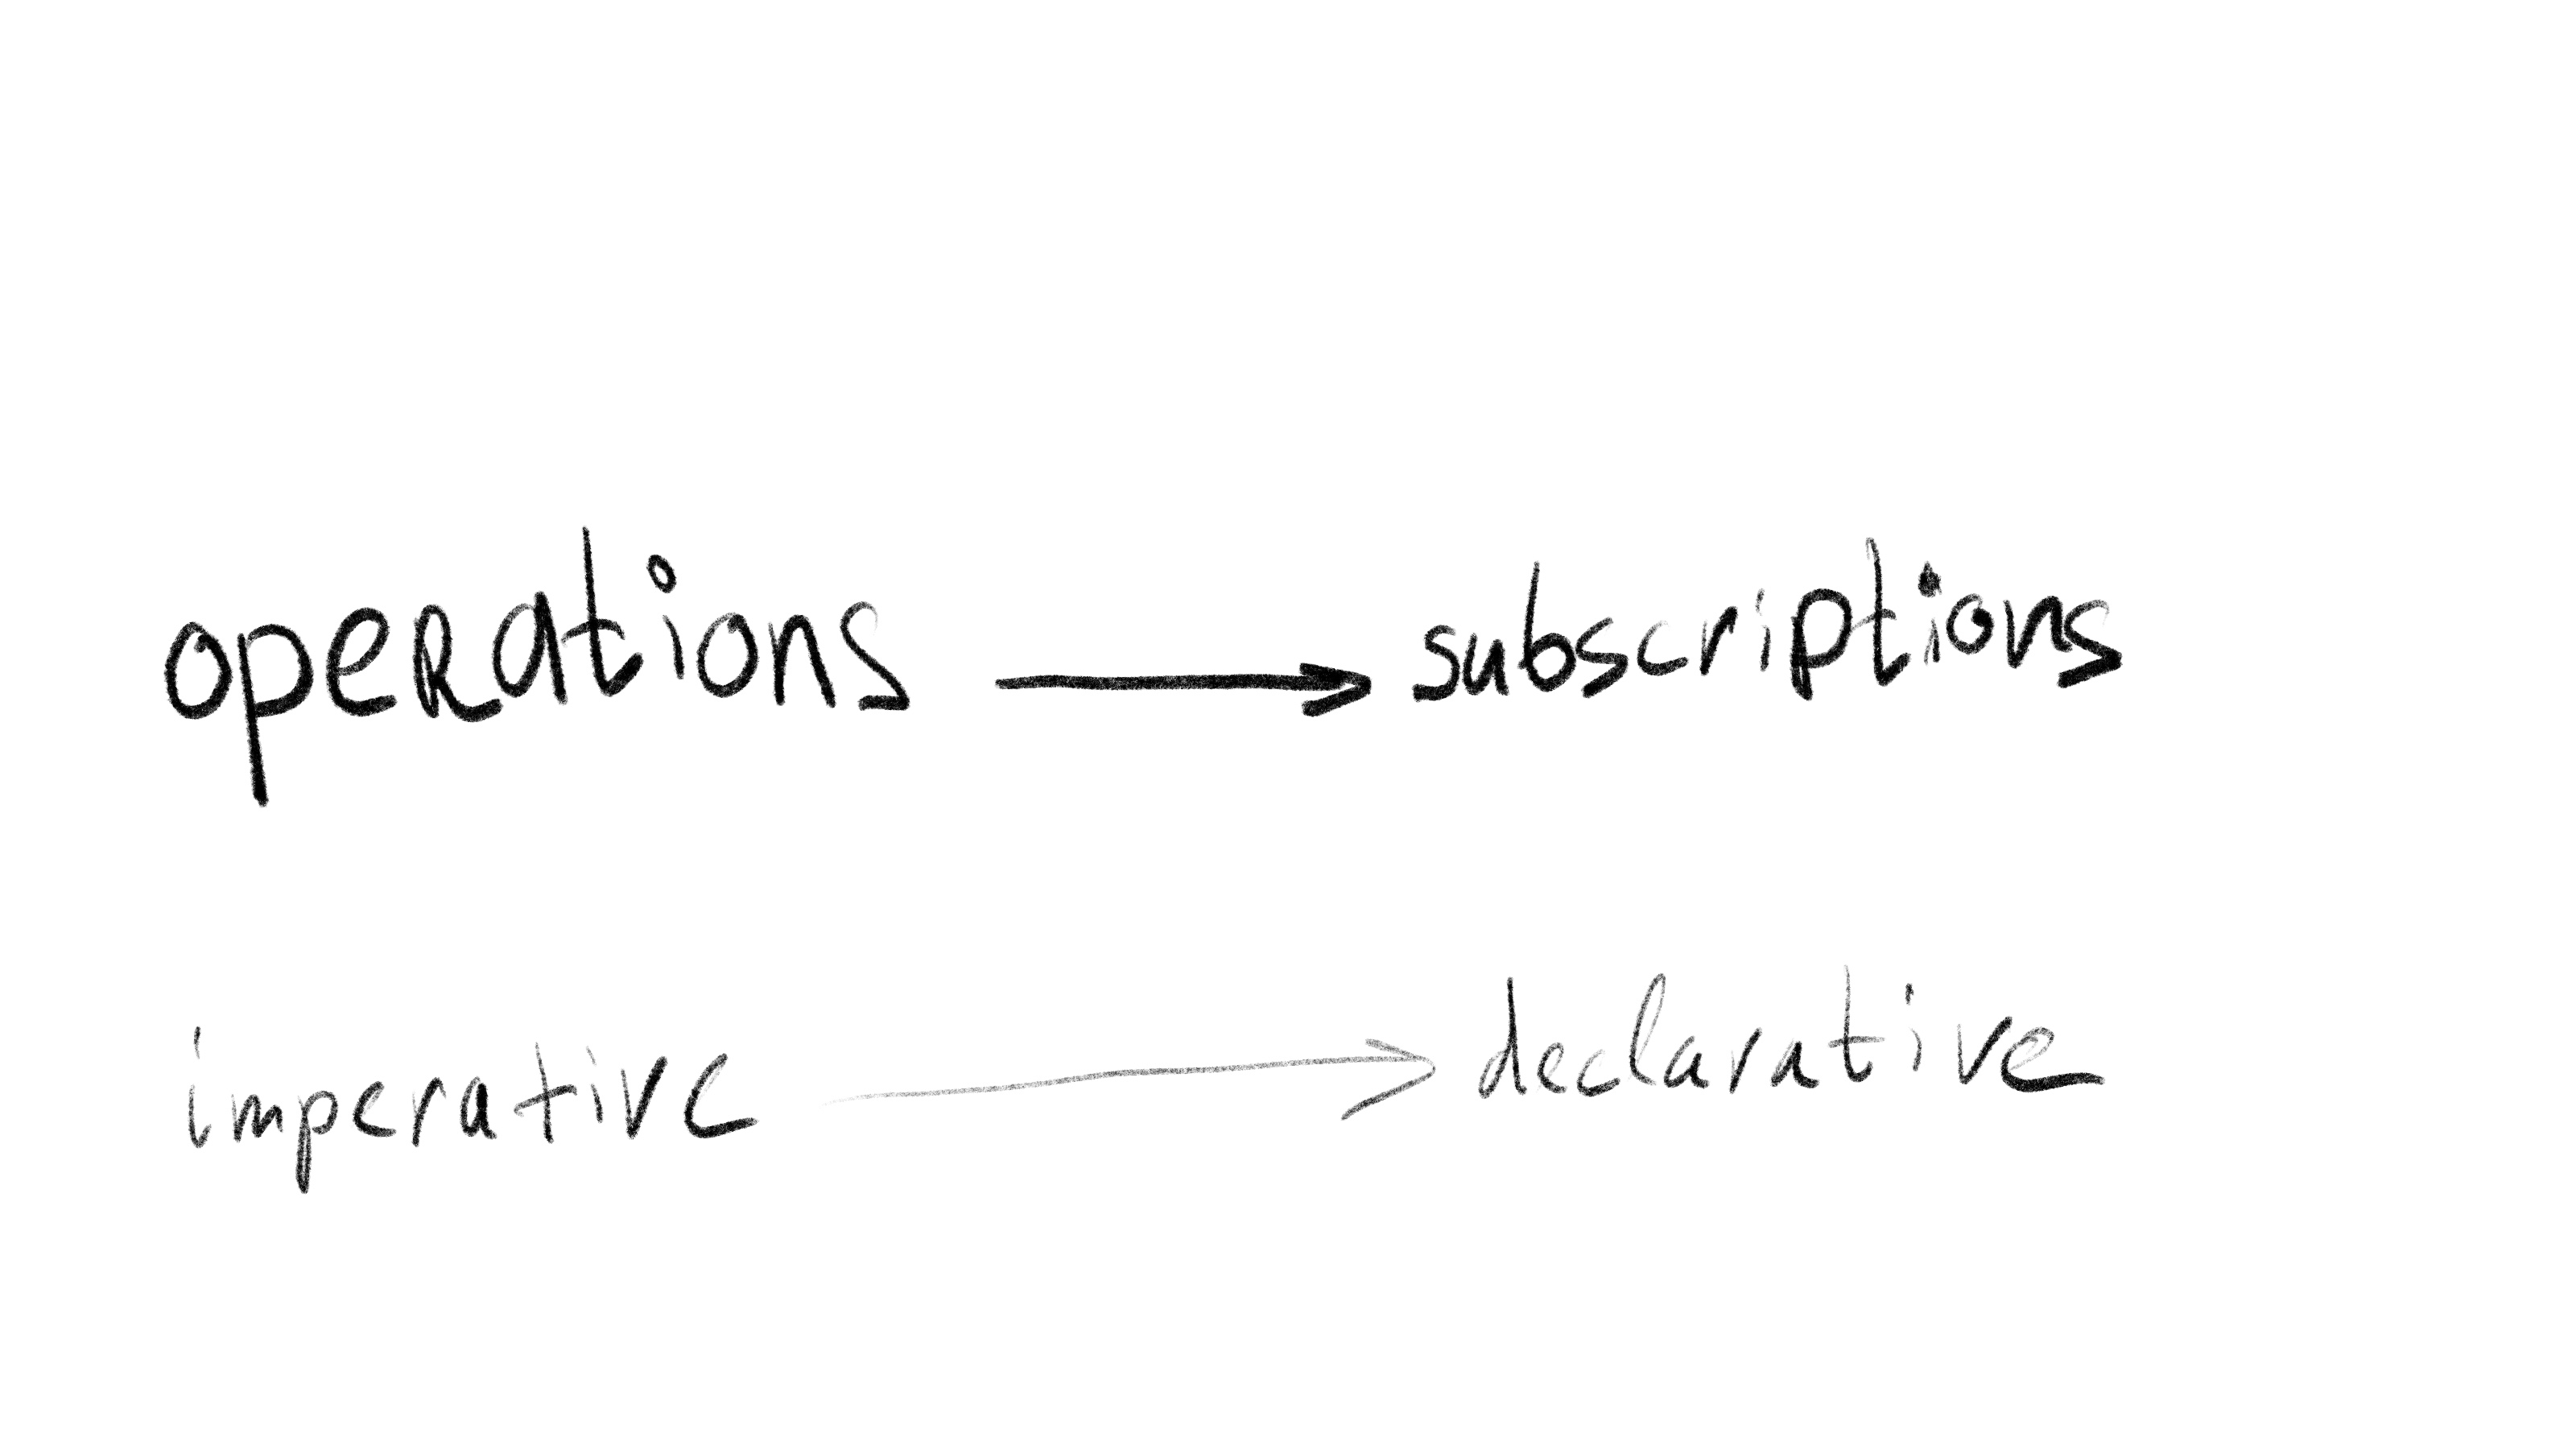 operations → subscriptions
imperative → declarative